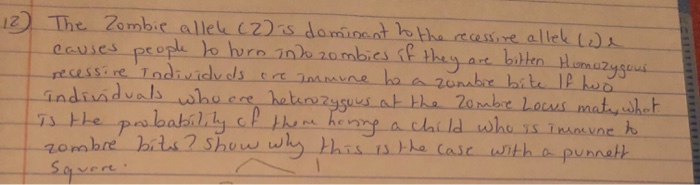 12) The Zombie allele (Z) is dominant to the recessive allele (z) &
causes people to turn into zombies if they are bitten Homozygous
recessive Individuals are immune to a zombie bite If two
individuals who are heterozygous at the Zombie Locus mate, what
is the probability of them having a child who is immune to
zombie bits? Show why this is the case with a punnett
Square.